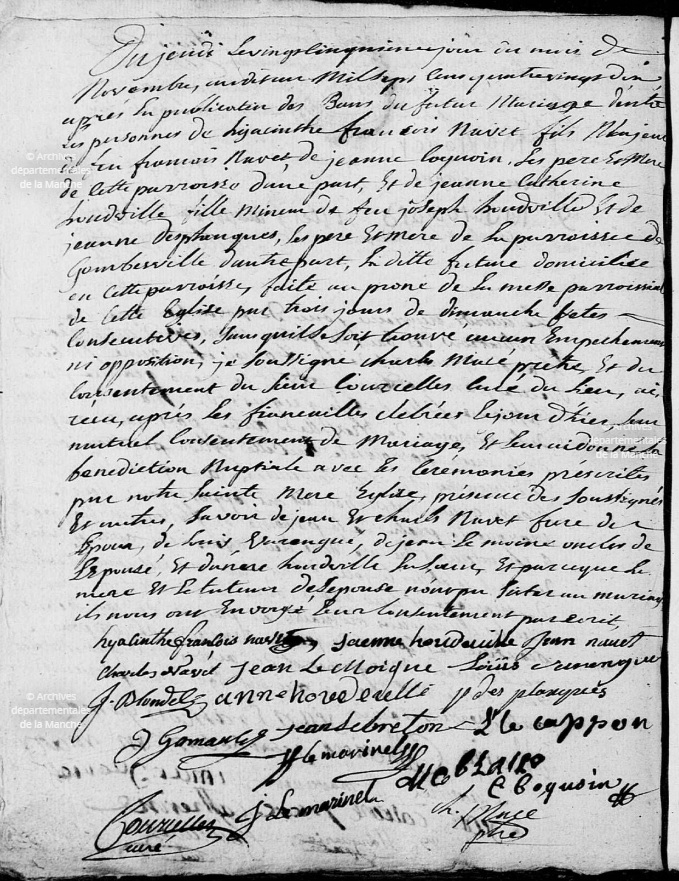 Du jeudi le vingt cinquieme jour du mois de
Novembre, audit an Mil Sept Cens quatre vingt dix
après la publication des Bans du futur Mariage d'entre
les personnes de hyacinthe francois Navet fils Majeur
de feu francois Navet de jeanne Coquoin, Ses pere Et Mere
de cette parroisse d'une part, Et de jeanne Catherine
houdville fille Mineure de feu joseph houdville Et de
jeanne desplanques, Ses pere Et Mere de la parroisse de
Gomberville d'autre part, la ditte future domiciliée
en cette parroisse, faite au prone de la messe parroissial
de cette Eglise par trois jours de dimanche fetes
Consecutives, sans quil se soit trouvé aucun Empechement
ni opposition, je soussigné charles Macé prêtre, Et du
Consentement du Sieur Courcelles Curé du lieu, ai
recu, après les fiancailles Celebrées le jour d'hier, leur
mutuel Consentement de Mariage, Et leur ai donné la
benediction Nuptiale avec les Ceremonies préscrites
par notre Sainte Mere Eglise, présence des Soussignés
Et autres, Savoir de jean Et charles Navet frere de
Epoux, de Louis, de jean Le moine oncles de
L'Epouse, Et d'anne houdville sa Soeur, Et parceque la
mere Et le tuteur de l'epouse n'ont pu assister au mariage
ils nous ont Envoyé leur Consentement par ecrit
hyacinthe francois navet jeanne houdeville Jean navet
Charles Navet Jean Le Moigne Louis
J. Blondel anne houdeville p des planques
J Gamault jean Lebreton L le cappon
le marinel
M e blaizo
C Coquoin
Courcelles J Le marinel ch. Mace
curé ptre
© Archives
départementales
de la Manche
© Archives
départementales
de la Manche
© Archives
départementales
de la Manche